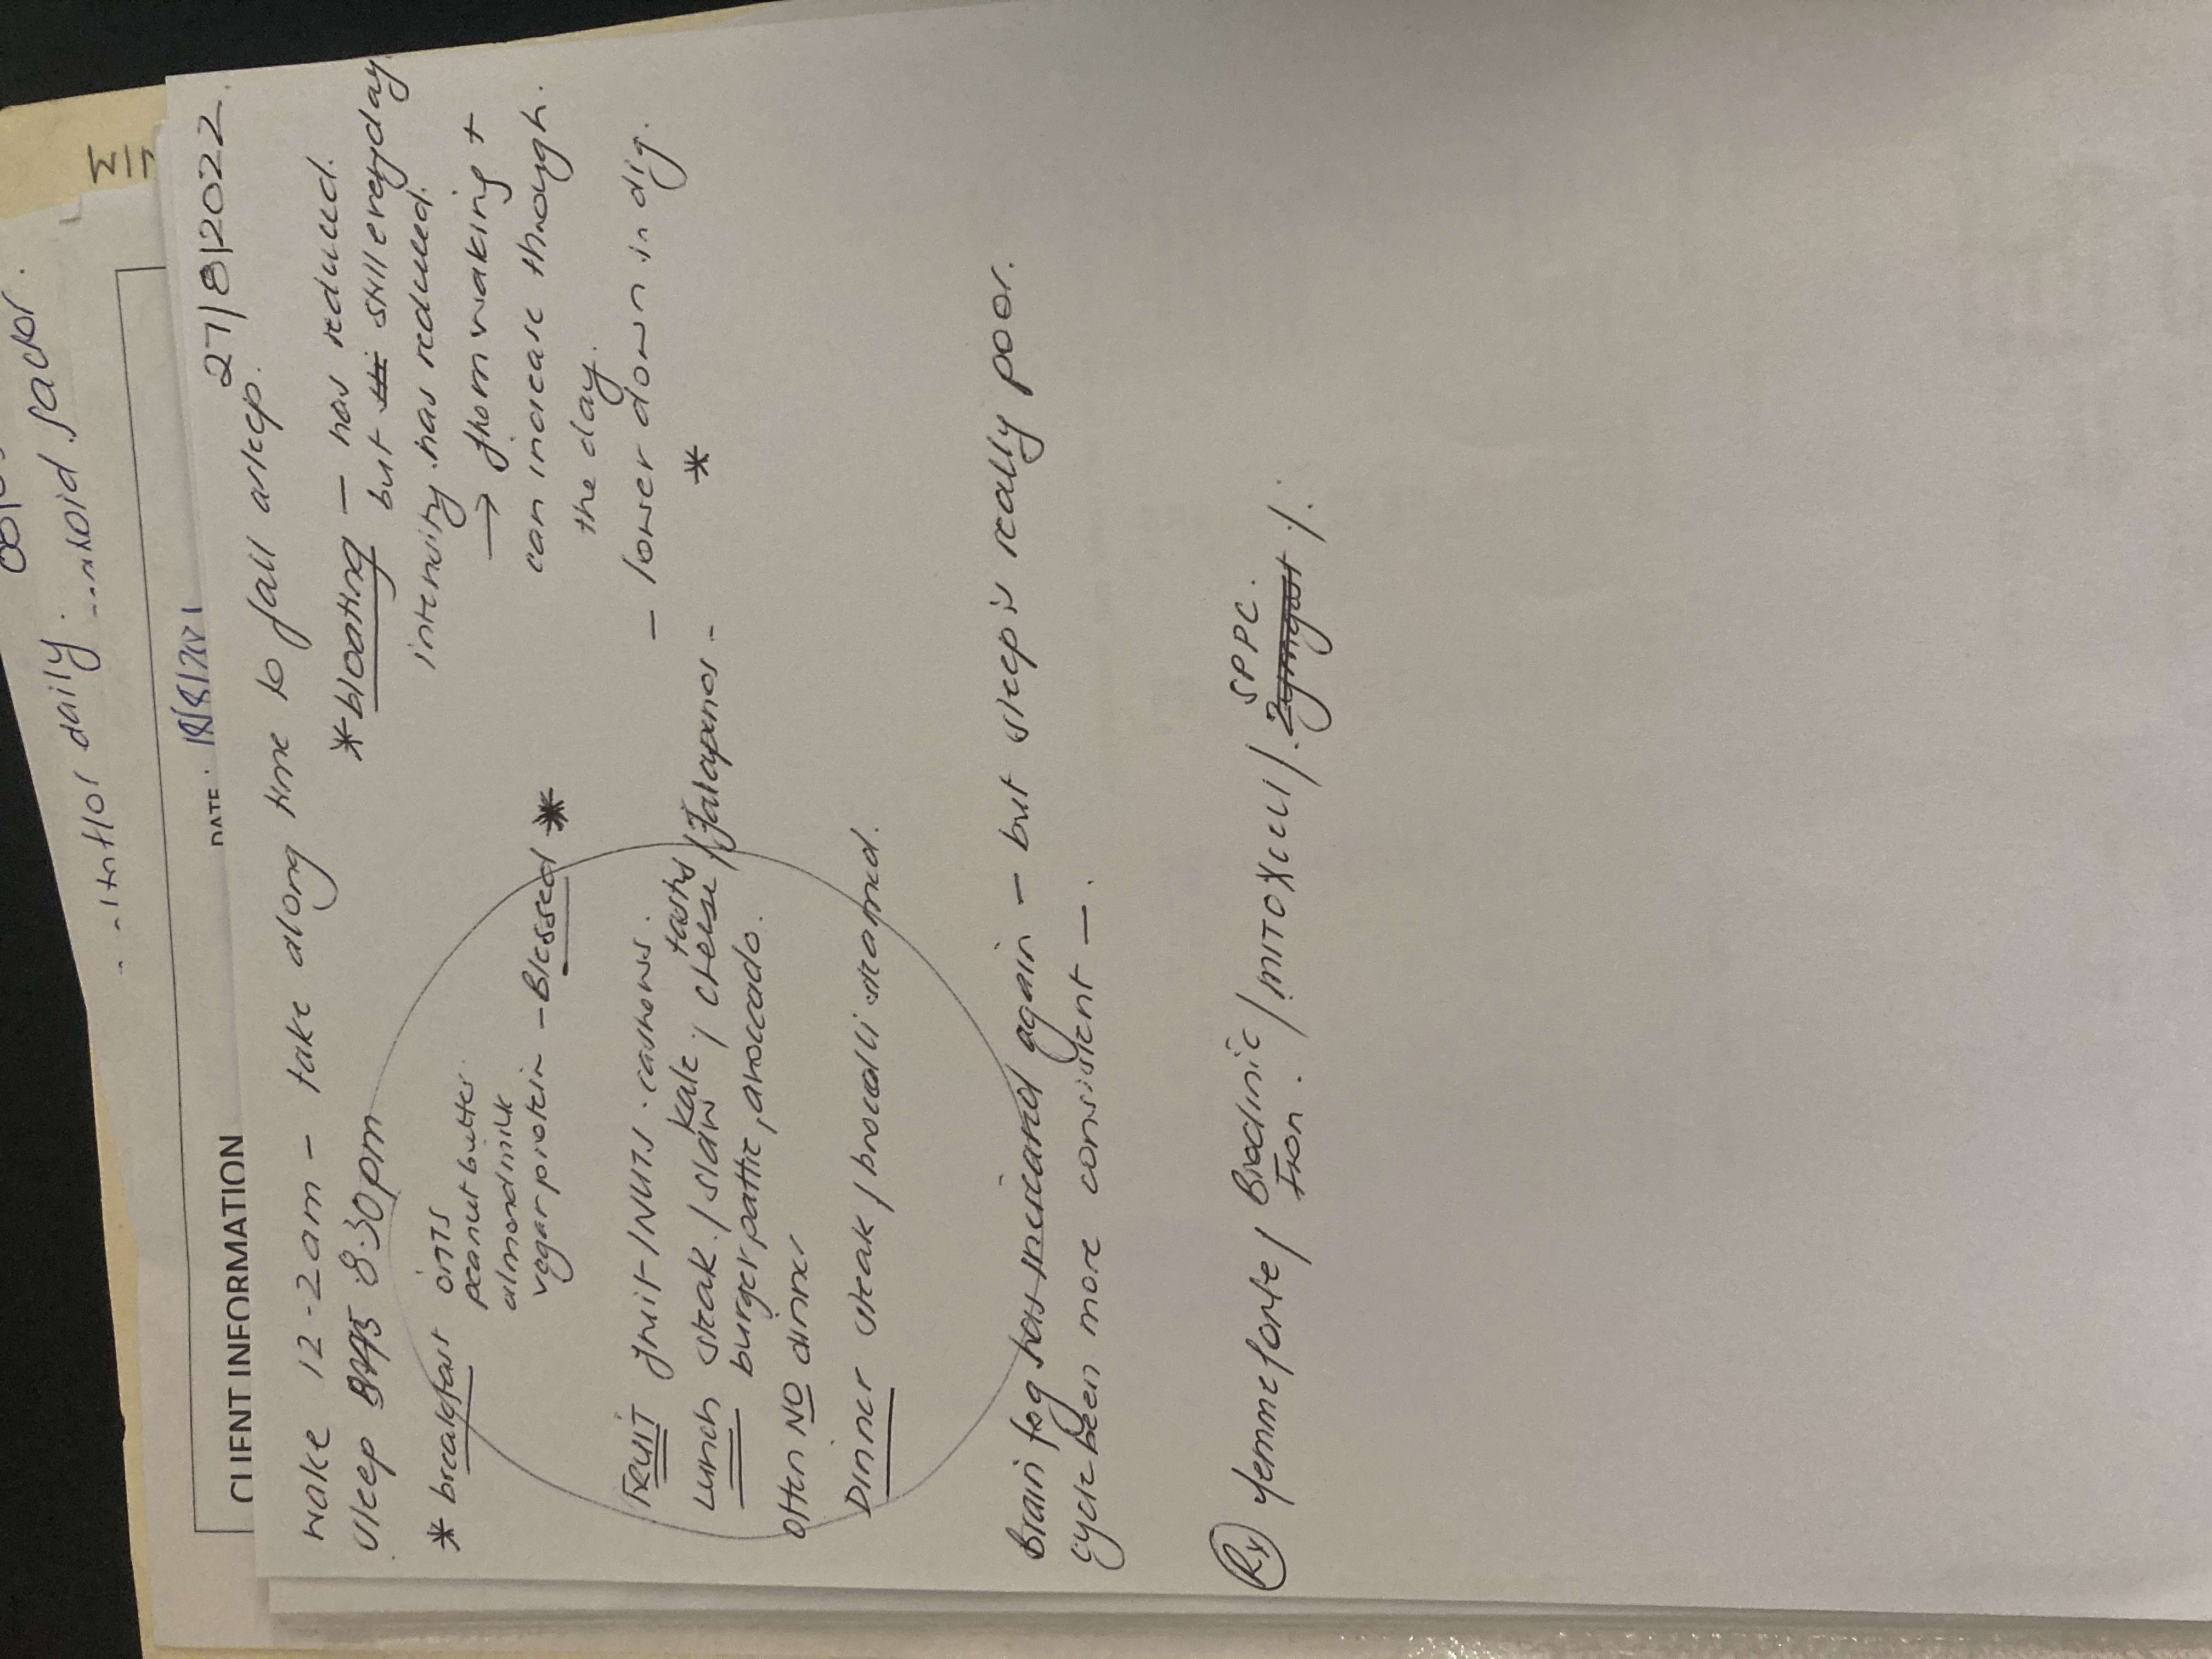 daily.
DATE:
CLIENT INFORMATION
27/8/2022.
wake 12-2am - take along time to fall asleep.
sleep 8:30pm
* bloating - has reduced.
but still everyday
intensity has reduced.
→ from waking +
can increase through
the day.
- lower down in dig.
*
* breakfast oats
peanut butter
almond milk
vegan protein - Blessed *
FRUIT fruit/NUTS. cashews.
Lunch steak / slaw kale / cheese tasty / Jalapenos -
burger pattie, avocado.
Often NO dinner
Dinner steak / brocolli steamed.
Brain fog has increased again - but sleep is really poor.
cycle been more consistent -.
Rx femme forte / Bioclinic Iron. / MITOXcell / SPPC.